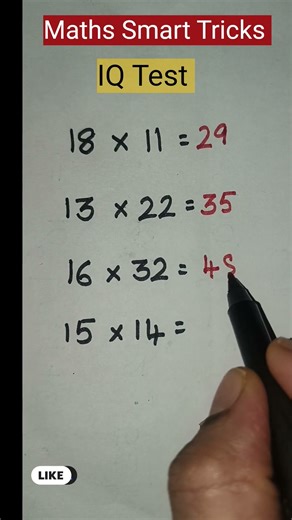 Maths Smart Tricks
IQ Test
18 × 11 = 29
13 × 22 = 35
16 × 32 = 48
15 × 14 =
LIKE